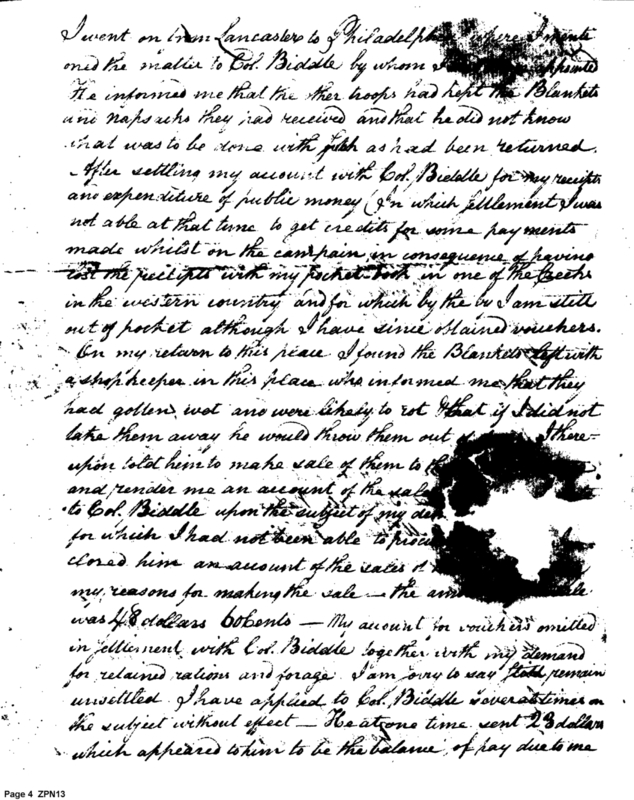 I went on from Lancaster to Philadelphia where I menti
oned the matter to Col. Biddle by whom I appointed
He informed me that the other troops had kept the Blankets
and napsacks they had received and that he did not know
what was to be done with such as had been returned.
After settling my account with Col. Biddle for my receipts
and expenditure of public money (In which settlement I was
not able at that time to get credits for some payments
made whilst on the campain in consequence of having
lost the receipts with my pocket-book in one of the Creeks
in the western country and for which by the by I am still
out of pocket although I have since obtained vouchers.
On my return to this place I found the Blankets left with
a shopkeeper in this place who informed me that they
had gotten wet and were likely to rot & that if I did not
take them away he would throw them out of I there-
upon told him to make sale of them to the
and render me an account of the sale
to Col. Biddle upon the subject of my
for which I had not been able to
closed him an account of the sales
my reasons for making the sale — the
was 48 dollars 60 Cents — My account for vouchers omitted
in settlement with Col. Biddle together with my demand
for retained rations and forage I am sorry to say still remain
unsettled. I have applied to Col. Biddle several times on
the subject without effect — He at one time sent 23 dollars
which appeared to him to be the balance of pay due to me
Page 4 ZPN13